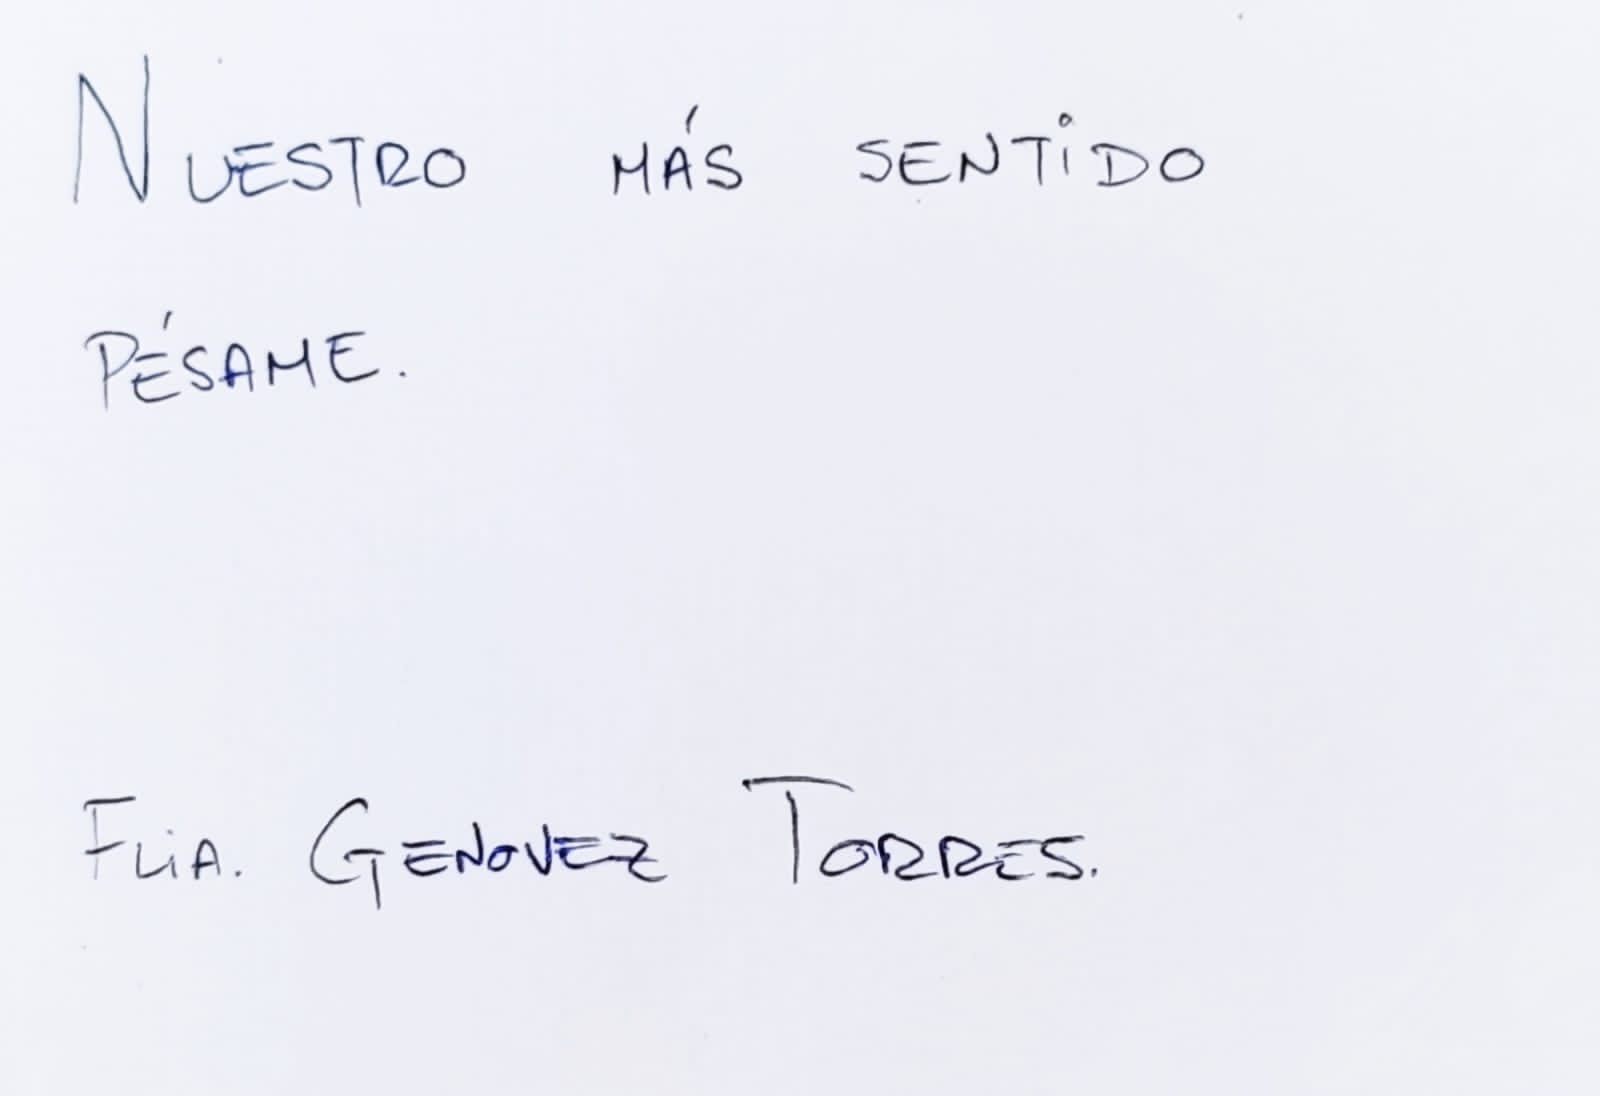 NUESTRO MÁS SENTiDO
PÉSAME.
FLiA. GENOVEZ TORRES.